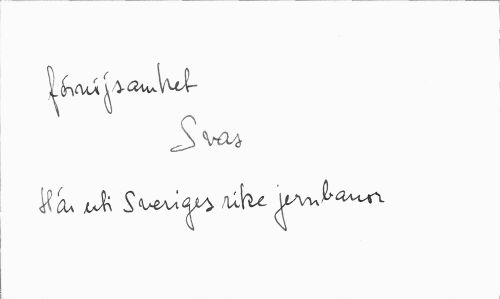 förnöjsamhet
Svas
Här uti Sveriges rike jernbanor